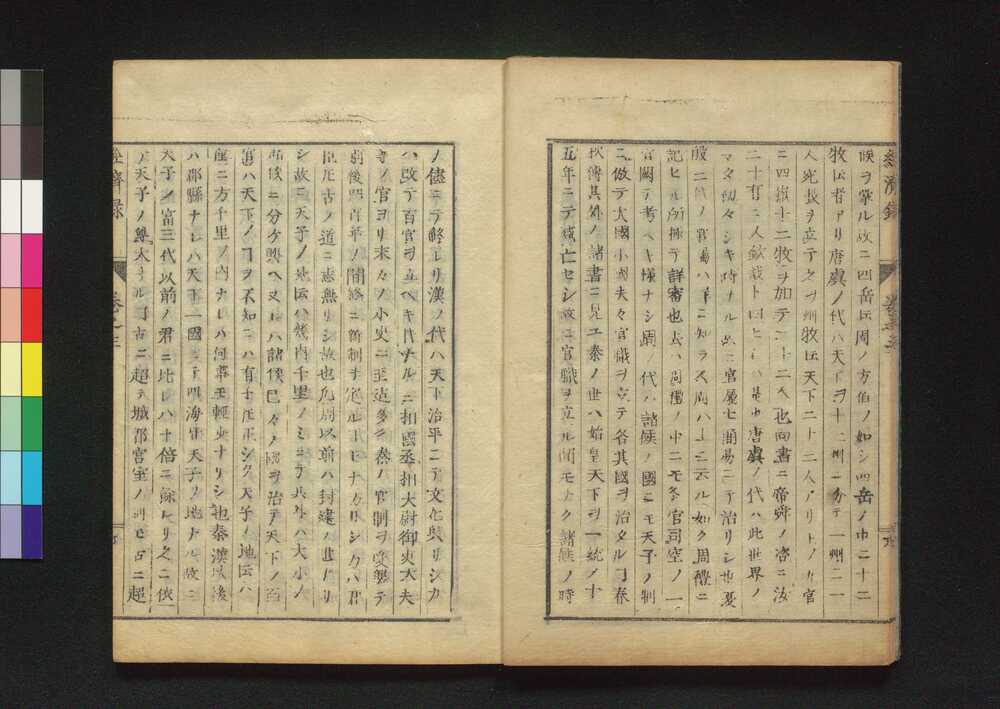 經濟録
巻之三
候ヲ掌ル故ニ四岳ト云周ノ方伯ノ如シ四岳ノ中ニ十二
牧ト云者アリ唐虞ノ代ハ天下ヲ十二州ニ分テ一州ニ一
人宛長ヲ立テ之ヲ州牧ト云天下ニ十二人アリトノ官
ニ四嶽十二牧ヲ加テ二十二人也尚書ニ帝舜ノ咨ニ汝
二十有二人欽哉ト曰ヒシハ是也唐虞ノ代ハ此世界ノ
マタ幼々シキ時ナル故ニ官属七簡易ニテ治リシ也夏
殷二代ノ官職ハ下ニ知ラス周ハ上ニ云ル如ク周禮ニ
記セル所極テ詳審也去ハ周禮ノ中ニモ冬官司空ノ一
官闕テ考ヘキ様ナシ周ノ代ハ諸候ノ國ニモ天子ノ制
ニ倣テ大國小國夫々官職ヲ立テ各其國ヲ治タルヿ春
秋傳其外ノ諸書ニ見ユ秦ノ世ハ始皇天下ヲ一統ノ十
五年ニテ滅亡セシ故ニ官職ヲ立ル間モナク諸候ノ時
ノ儘ニテ終レリ漢ノ代ハ天下治平ニテ文化興リシカ
ハ改テ百官ヲ立ヘキ代ナルニ相國丞相大尉御史大夫
等ノ官ヨリ末々ノ小吏ニ至迄多クハ秦ノ官制ヲ受襲テ
前後四百年ノ間終ニ新制ヲ定ルヿナカリシカハ君
臣圧古ノ道ニ志無リシ故也凡周以前ハ封建ノ世ナリ
シ故ニ天子ノ地ト云ハ畿内千里ノミニテ其外ハ大小ノ
諸候ニ分ケ與ヘ又レハ諸候己々ノ國ヲ治テ天下ノ百
官ハ天下ノヿヲ不知ニハ有子ト正シク天子ノ地ト云ハ
唯ニ方千里ノ内ナレハ何事モ輕少ナリシ也秦漢以後
ハ郡縣ナレハ天下一國ニテ四海皆天子ノ地ナル故ニ
天子ノ富三代以前ノ君ニ比レハ十倍ニ餘レリ之ニ依
テ天子ノ奥大ナルヿ古ニ超テ城郭宮室ノ制モ古ニ超
經濟録
巻之三